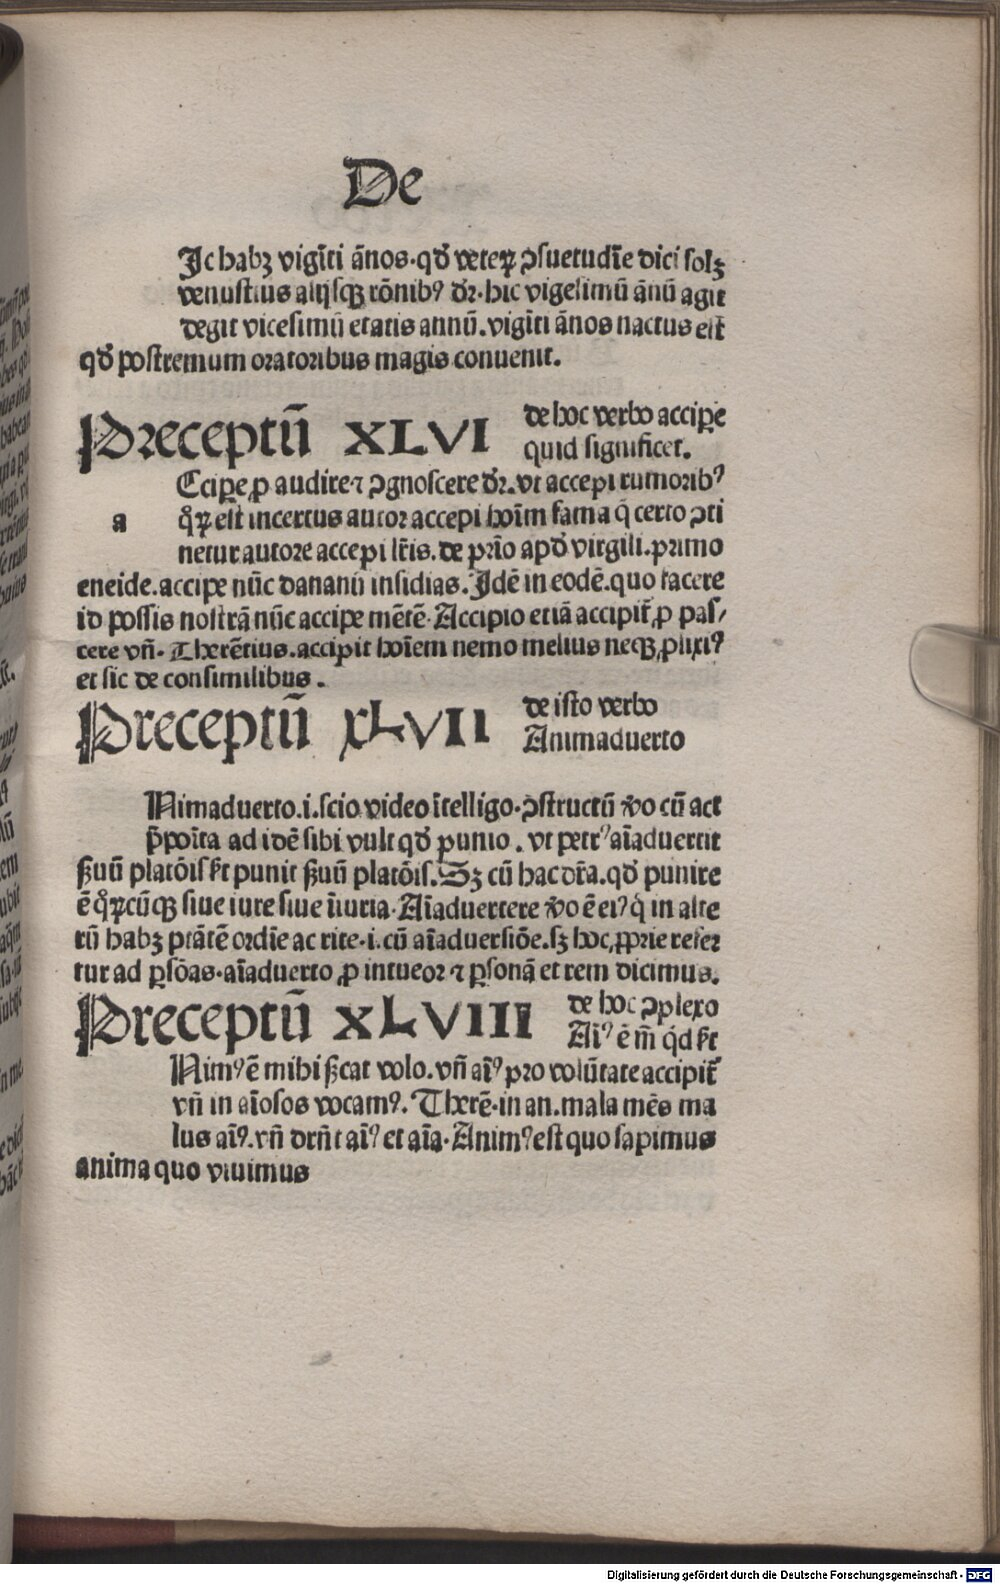 De
Jc habꝫ vigīti ānos·qď veteꝝ ꝯsuetudīe dici solꝫ
venustius alijsqꝫ rōnibꝰ dr̄·hic vigesimū ānū agit
degit vicesimū etatis annū.vigīti ānos nactus est
qď postremum oratoribus magis conuenit.
Preceptū XLVI
de hoc verbo accipe
quid significet.
Ccipe ꝓ audire·⁊ ꝯgnoscere dr̄.vt accepi rumoribꝰ
a qͦꝝ est incertus autor accepi hoīm fama q̄ certo ꝯti
netur autore accepi lr̄is.de prīo apď virgili.primo
eneide.accipe nūc dananū insidias.Jdē in eodē.quo facere
id possis nostrā nūc accipe mētē·Accipio etiā accipit̄ ꝓ pas/
cere vn̄·Therētius.accipit hoīem nemo melius neqꝫ ꝓlixiꝰ
et sic de consimilibus.
Preceptū XLVII
de isto verbo
Animaduerto
Nimaduerto.i.scio video ītelligo·ꝯstructū v̄o cū act
p̄poīta ad idē sibi vult qď punio.vt petrꝰ aīaduertit
ẜuū platōis ẜt punit ẜuū platōis.Sꝫ cū hac dr̄a.qď punire
ē qͦꝝcūqꝫ siue iure siue īiuria·Aīaduertere v̄o ē eiꝰ qͥ in alte
rū habꝫ ptātē ordīe ac rite·i.cū aīaduersiōe.sꝫ hoc ꝓprie refer
tur ad ꝑsōas·aīaduerto ꝓ intueor ⁊ ꝑsonā et rem dicimus.
Preceptū XLVIII
de hoc ꝯplexo
Aīꝰ ē m̄ qͥd ẜt
Nimꝰ ē mihi ẜcat volo.vn̄ aīꝰ pro volūtate accipit̄
vn̄ in aīosos vocamꝰ.Therē·in an.mala mēs ma
lus aīꝰ.vn̄ drn̄t aīꝰ et aīa·Animꝰ est quo sapimus
anima quo viuimus
Digitalisierung gefördert durch die Deutsche Forschungsgemeinschaft · DFG